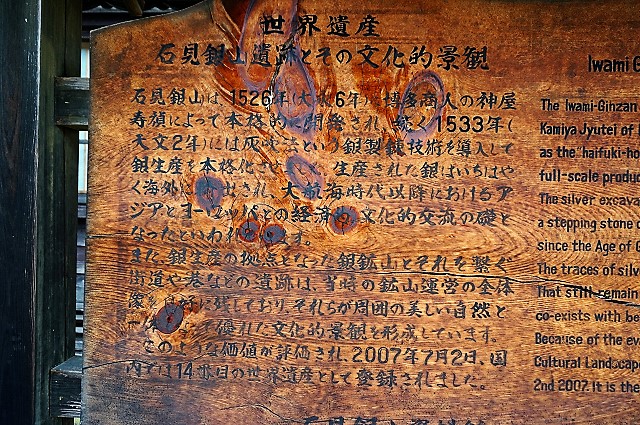 世界遺産
石見銀山遺跡とその文化的景観
石見銀山は、1526年(大永6年)、博多商人の神屋
寿禎によって本格的に開発され、続く1533年(
天文2年)には灰吹法という銀製錬技術を導入して
銀生産を本格化させました。生産された銀はいちはや
く海外に輸出され、大航海時代以降におけるア
ジアとヨーロッパとの経済的、文化的交流の礎と
なったといわれています。
また、銀生産の拠点となった銀鉱山とそれを繋ぐ
街道や港などの遺跡は、当時の鉱山運営の全体
像を良好に残しており、それらが周囲の美しい自然と
一体となって優れた文化的景観を形成しています。
このような価値が評価され、2007年7月2日、国
内では14番目の世界遺産として登録されました。
Iwami G
The Iwami-Ginzan
Kamiya Jyutei of
as the "haifuki-ho
full-scale produc
The silver excava
a stepping stone o
since the Age of G
The traces of silve
That still remain
co-exists with be
Because of the ev
Cultural Landscape
2nd 2007. It is the